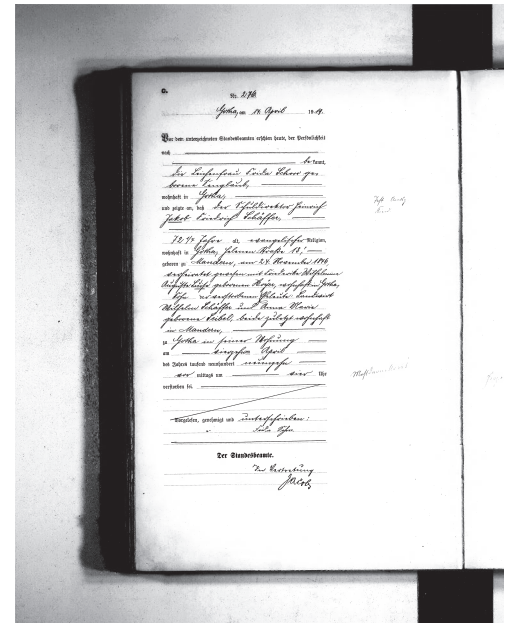 C.
Nr. 276
Gotha, am 14. April 1919.
Vor dem unterzeichneten Standesbeamten erschien heute, der Persönlichkeit
nach
bekannt,
die Leichenfrau Frieda Schorr ge-
borene
wohnhaft in Gotha,
und zeigte an, daß der Schuldirektor Heinrich
Jakob Friedrich Schäffer,
72 ½ Jahre alt, evangelischer Religion,
wohnhaft in Gotha, Helenen Straße 13,
geboren zu Mandern, am 24. November 1846
verheiratet gewesen mit Friederike Wilhelmine
Auguste Luise geborenen wohnhaft in Gotha,
Sohn der verstorbenen Eheleute Landwirt
Wilhelm Schäffer und Anna Maria
geborene beide zuletzt wohnhaft
in Mandern,
zu Gotha in seiner Wohnung
am vierzehn April
des Jahres tausend neunhundert neunzehn
vor mittags um vier Uhr
verstorben sei.
Vorgelesen, genehmigt und unterschrieben:
Der Standesbeamte.
In Vertretung